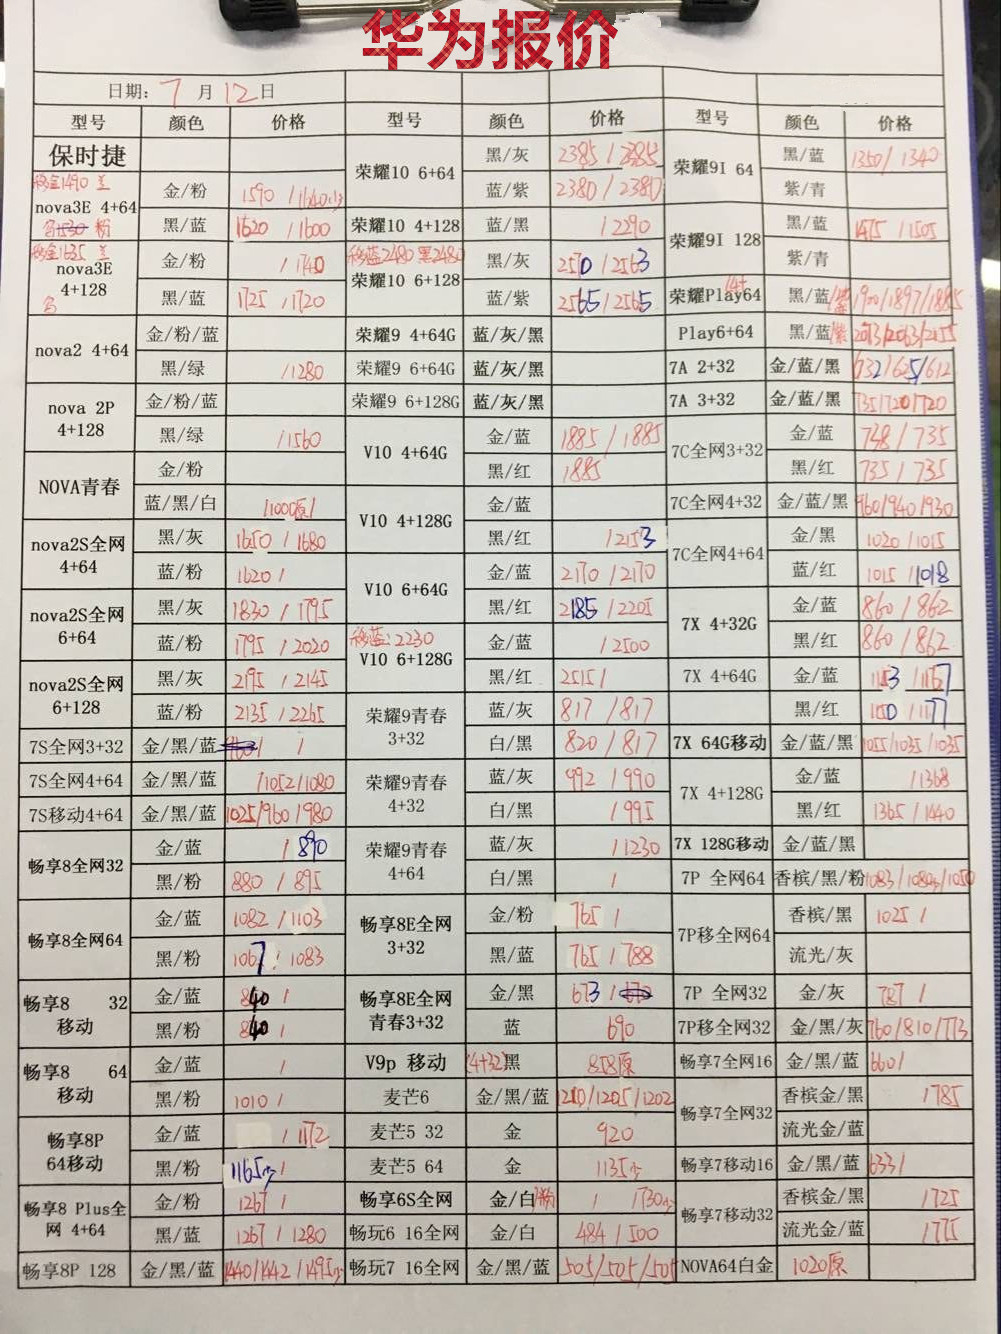 华为报价
日期: 7 月 12 日
型号 颜色 价格 型号 颜色 价格 型号 颜色 价格
保时捷 荣耀10 6+64 黑/灰 2385 / 2385 荣耀9I 64 黑/蓝 1350/ 1340
移金1490 nova3E 4+64 金/粉 1590 蓝/紫 2380 / 2380 紫/青
粉 黑/蓝 1620 / 1600 荣耀10 4+128 蓝/黑 / 2290 荣耀9I 128 黑/蓝 1475 / 1505
移金1635 nova3E 4+128 金/粉 / 1740 移蓝2480 黑2480 荣耀10 6+128 黑/灰 2570 / 2563 紫/青
黑/蓝 1725 / 1720 蓝/紫 2565 / 2565 荣耀Play64 黑/蓝/紫 1900/1897/1885
nova2 4+64 金/粉/蓝 荣耀9 4+64G 蓝/灰/黑 Play6+64 黑/蓝/紫
黑/绿 /1280 荣耀9 6+64G 蓝/灰/黑 7A 2+32 金/蓝/黑 632/625/612
nova 2P 4+128 金/粉/蓝 荣耀9 6+128G 蓝/灰/黑 7A 3+32 金/蓝/黑 735/720/720
黑/绿 /1560 V10 4+64G 金/蓝 1885 / 1885 7C全网3+32 金/蓝 748 / 735
NOVA青春 金/粉 黑/红 1885 黑/红 735 / 735
蓝/黑/白 1000原/ V10 4+128G 金/蓝 7C全网4+32 金/蓝/黑 960/940/930
nova2S全网 4+64 黑/灰 1650 / 1680 黑/红 / 2153 7C全网4+64 金/黑 1020 / 1015
蓝/粉 1620 / V10 6+64G 金/蓝 2170 / 2170 蓝/红 1015 / 1018
nova2S全网 6+64 黑/灰 1830 / 1795 黑/红 2185 / 2205 7X 4+32G 金/蓝 860 / 862
蓝/粉 1795 / 2020 移蓝:2230 V10 6+128G 金/蓝 / 2500 黑/红 860 / 862
nova2S全网 6+128 黑/灰 2195 / 2145 黑/红 2515 / 7X 4+64G 金/蓝 1153 / 1167
蓝/粉 2135 / 2265 荣耀9青春 3+32 蓝/灰 817 / 817 黑/红 1150 / 1177
7S全网3+32 金/黑/蓝 / / 白/黑 820 / 817 7X 64G移动 金/蓝/黑 1055/1035/1035
7S全网4+64 金/黑/蓝 /1052/1080 荣耀9青春 4+32 蓝/灰 992 / 990 7X 4+128G 金/蓝 / 1368
7S移动4+64 金/黑/蓝 1025/960/980 白/黑 / 995 黑/红 1365 / 1440
畅享8全网32 金/蓝 / 890 荣耀9青春 4+64 蓝/灰 / 1230 7X 128G移动 金/蓝/黑
黑/粉 880 / 895 白/黑 / 7P 全网64 香槟/黑/粉 1083/1080/1050
畅享8全网64 金/蓝 1082 / 1103 畅享8E全网 3+32 金/粉 765 / 7P移全网64 香槟/黑 1025 /
黑/粉 1067 / 1083 黑/蓝 765 / 788 流光/灰
畅享8 32 移动 金/蓝 840 / 畅享8E全网 青春3+32 金/黑 673 / 7P 全网32 金/灰 787 /
黑/粉 840 / 蓝 690 7P移全网32 金/黑/灰 760/810/773
畅享8 64 移动 金/蓝 / V9p 移动 (4+32)黑 858原 畅享7全网16 金/黑/蓝 660/
黑/粉 1010 / 麦芒6 金/黑/蓝 1210/1205/1202 畅享7全网32 香槟金/黑 / 785
畅享8P 64移动 金/蓝 / 1172 麦芒5 32 金 920 流光金/蓝
黑/粉 1165 / 麦芒5 64 金 1135 畅享7移动16 金/黑/蓝 633/
畅享8 Plus全网 4+64 金/粉 1267 / 畅享6S全网 金/白/粉 / 1730 畅享7移动32 香槟金/黑 / 725
黑/蓝 1267 / 1280 畅玩6 16全网 金/白 484 / 500 流光金/蓝 / 775
畅享8P 128 金/黑/蓝 1440/1442/1495 畅玩7 16全网 金/黑/蓝 505/505/505 NOVA64白金 1020原